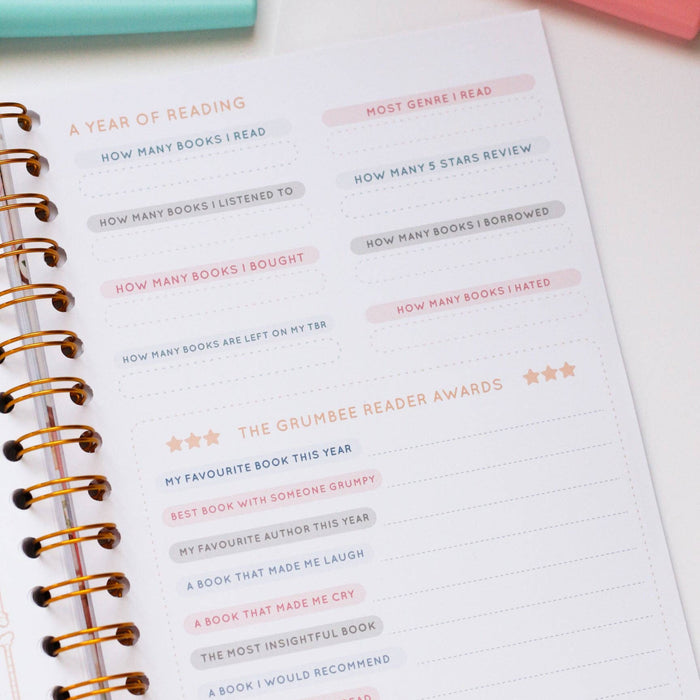 A YEAR OF READING
HOW MANY BOOKS I READ
HOW MANY BOOKS I LISTENED TO
HOW MANY BOOKS I BOUGHT
HOW MANY BOOKS ARE LEFT ON MY TBR
MOST GENRE I READ
HOW MANY 5 STARS REVIEW
HOW MANY BOOKS I BORROWED
HOW MANY BOOKS I HATED
THE GRUMBEE READER AWARDS
MY FAVOURITE BOOK THIS YEAR
BEST BOOK WITH SOMEONE GRUMPY
MY FAVOURITE AUTHOR THIS YEAR
A BOOK THAT MADE ME LAUGH
A BOOK THAT MADE ME CRY
THE MOST INSIGHTFUL BOOK
A BOOK I WOULD RECOMMEND
READ